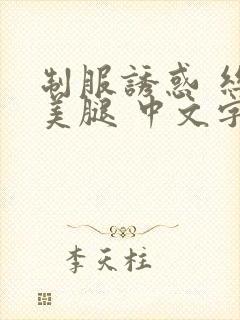 制服誘惑 絲
美腿 中文字
李天柱